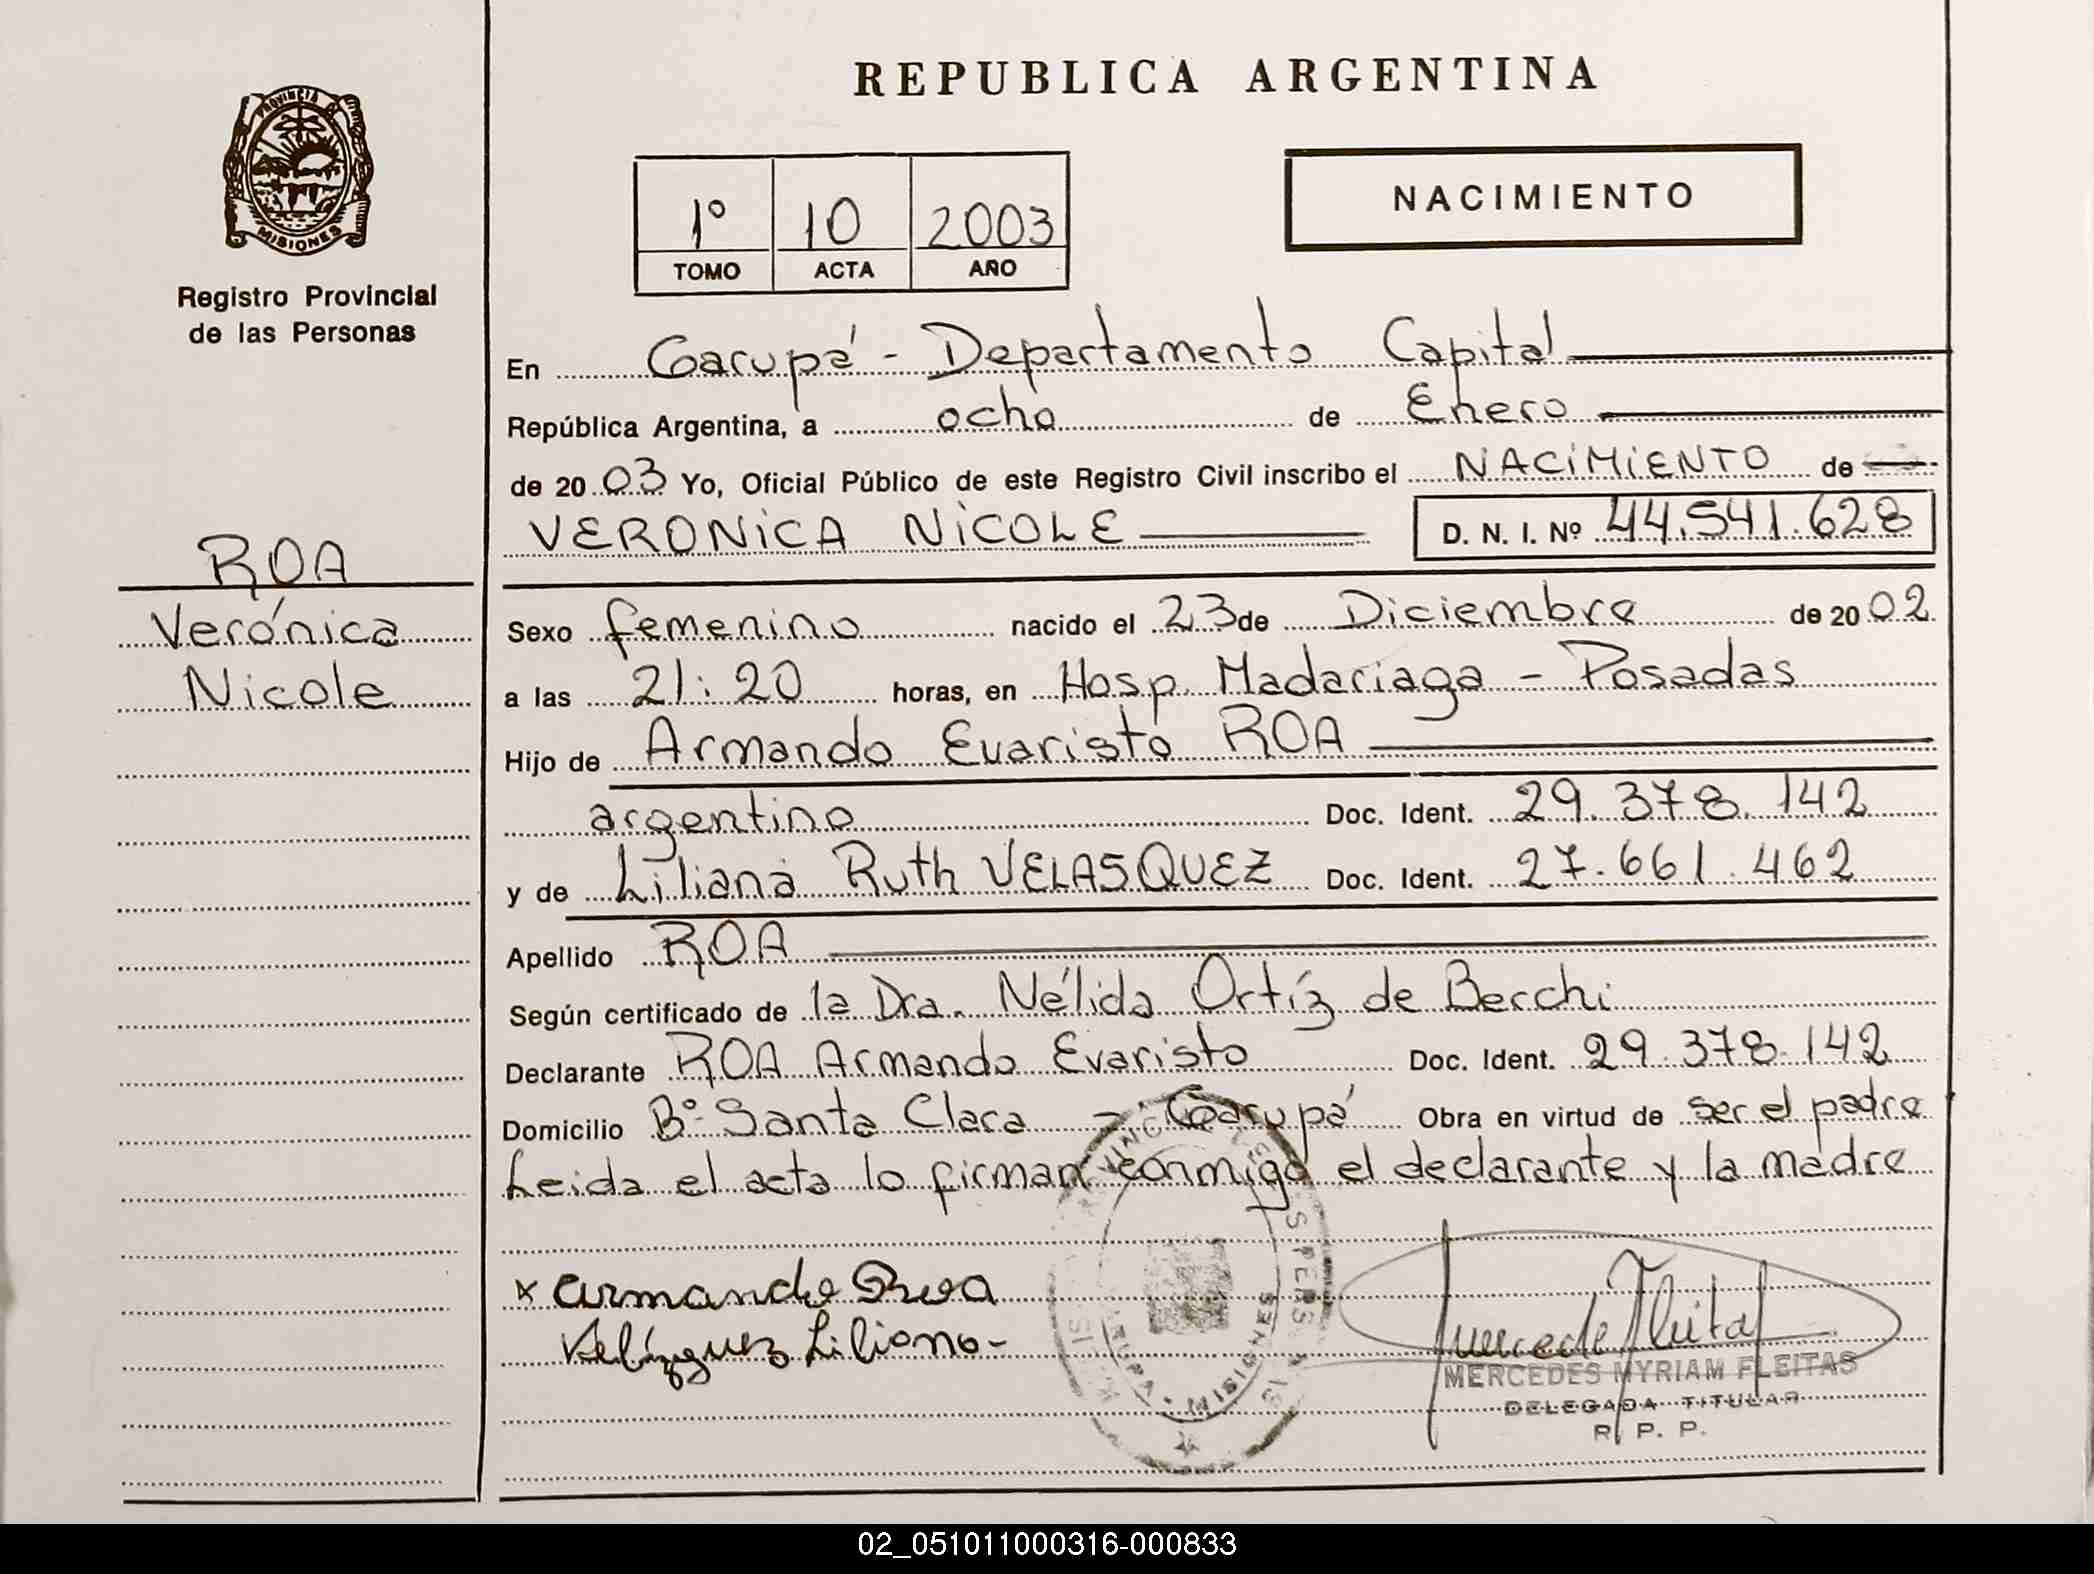 REPUBLICA ARGENTINA
PROVINCIA DE
MISIONES
Registro Provincial
de las Personas
1º 10 2003
TOMO ACTA AÑO
NACIMIENTO
En Garupá - Departamento Capital
República Argentina, a ocho de Enero
de 20 03 Yo, Oficial Público de este Registro Civil inscribo el NACIMIENTO de
VERONICA NICOLE D. N. I. Nº 44.541.628
ROA
Verónica
Nicole
Sexo femenino nacido el 23 de Diciembre de 20 02
a las 21:20 horas, en Hosp. Madariaga - Posadas
Hijo de Armando Evaristo ROA
argentino Doc. Ident. 29.378.142
y de Liliana Ruth VELASQUEZ Doc. Ident. 27.661.462
Apellido ROA
Según certificado de la Dra. Nélida Ortíz de Becchi
Declarante ROA Armando Evaristo Doc. Ident. 29.378.142
Domicilio Bº Santa Clara - Garupá Obra en virtud de ser el padre
Leida el acta lo firman conmigo el declarante y la madre
x Armando Roa
Velázquez Liliana-
MERCEDES MYRIAM FLEITAS
DELEGADA TITULAR
R. P. P.
02_051011000316-000833